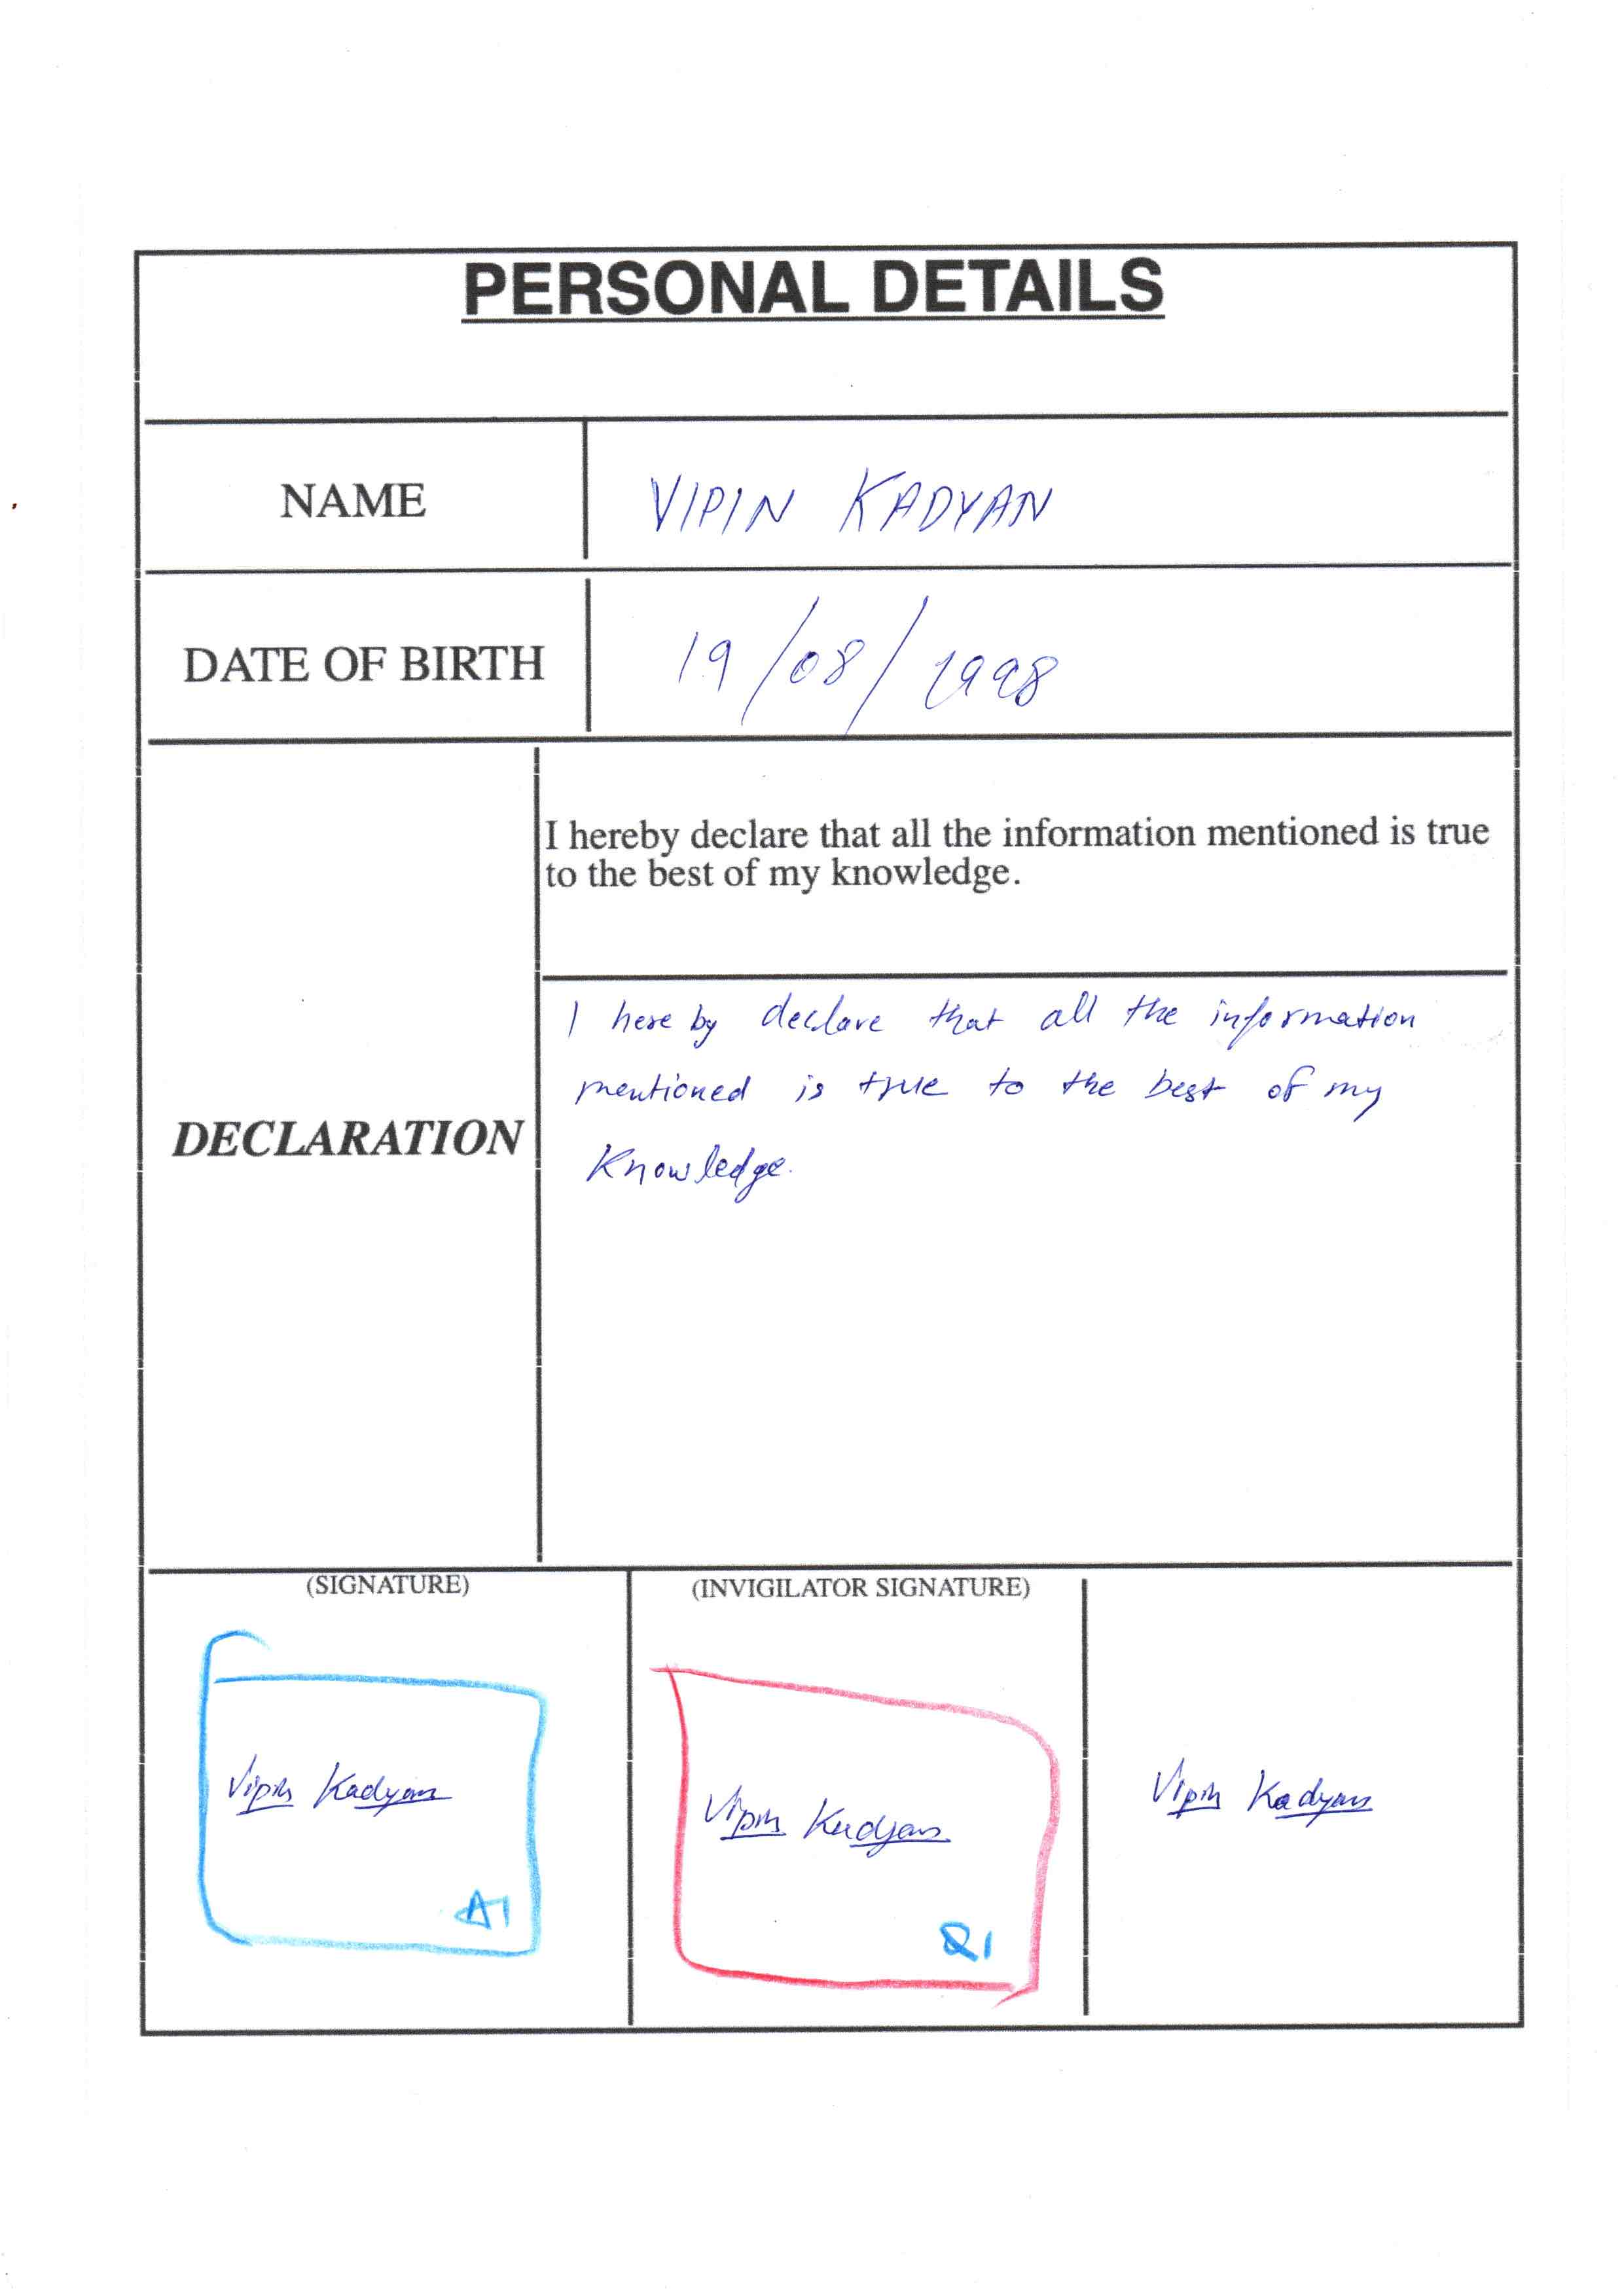 PERSONAL DETAILS
NAME
VIPIN KADYAN
DATE OF BIRTH
19/08/1998
I hereby declare that all the information mentioned is true
to the best of my knowledge.
DECLARATION
I here by declare that all the information
mentioned is true to the best of my
Knowledge.
(SIGNATURE)
(INVIGILATOR SIGNATURE)
Vipin Kadyan
Vipin Kadyan
Vipin Kadyan
A1
Q1